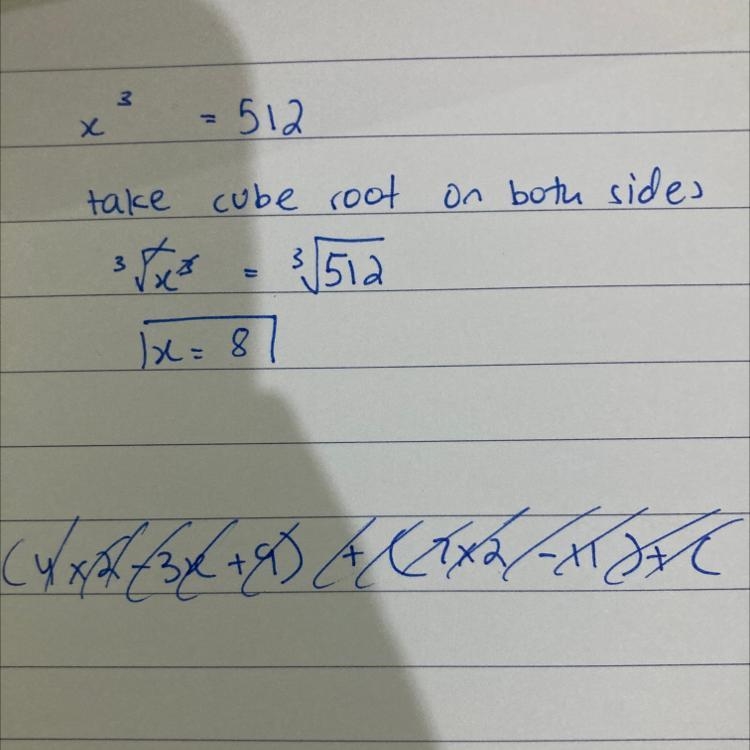 x³ = 512
take cube root on both sides
³√x³ = ³√512
x = 8
(4x2 - 3x + 9) + (7x2 -